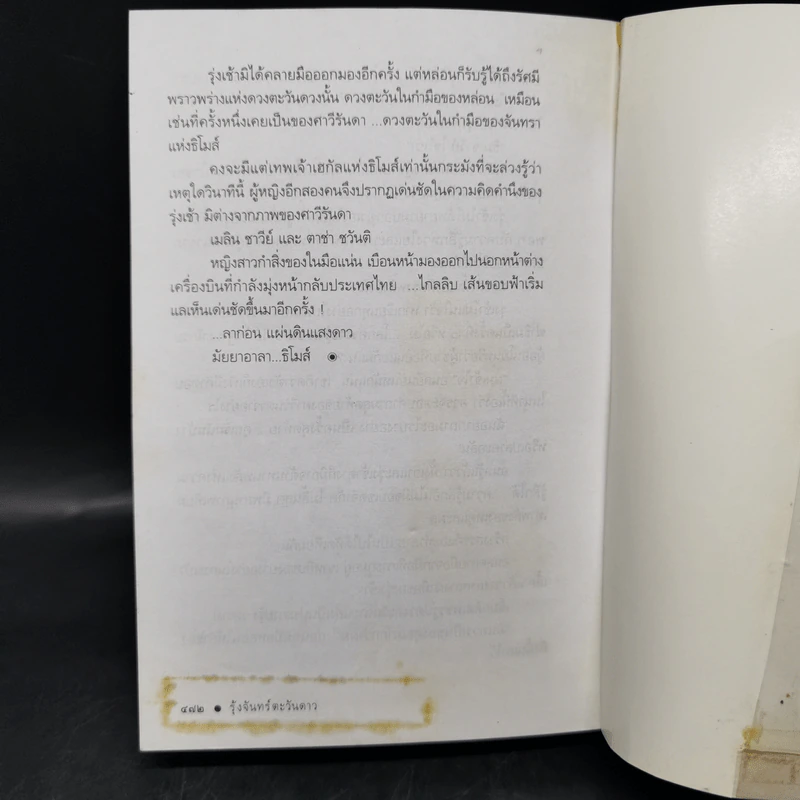 รุ่งเช้ามิได้คลายมือออกมองอีกครั้ง แต่หล่อนก็รับรู้ได้ถึงรัศมี
พราวพร่างแห่งดวงตะวันดวงนั้น ดวงตะวันในกำมือของหล่อน เหมือน
เช่นที่ครั้งหนึ่งเคยเป็นของศาวีรันดา ...ดวงตะวันในกำมือของจันทรา
แห่งธิโมส์
คงจะมีแต่เทพเจ้าเฮกัลแห่งธิโมส์เท่านั้นกระมังที่จะล่วงรู้ว่า
เหตุใดวินาทีนี้ ผู้หญิงอีกสองคนจึงปรากฏเด่นชัดในความคิดคำนึงของ
รุ่งเช้า มิต่างจากภาพของศาวีรันดา
เมลิน ชาวีย์ และ ตาซ่า ชวันติ
หญิงสาวกำสิ่งของในมือแน่น เบือนหน้ามองออกไปนอกหน้าต่าง
เครื่องบินที่กำลังมุ่งหน้ากลับประเทศไทย ...ไกลลิบ เส้นขอบฟ้าเริ่ม
แลเห็นเด่นชัดขึ้นมาอีกครั้ง !
...ลาก่อน แผ่นดินแสงดาว
มัยยาอาลา...ธิโมส์
๔๗๒ ● รุ้งจันทร์ตะวันดาว